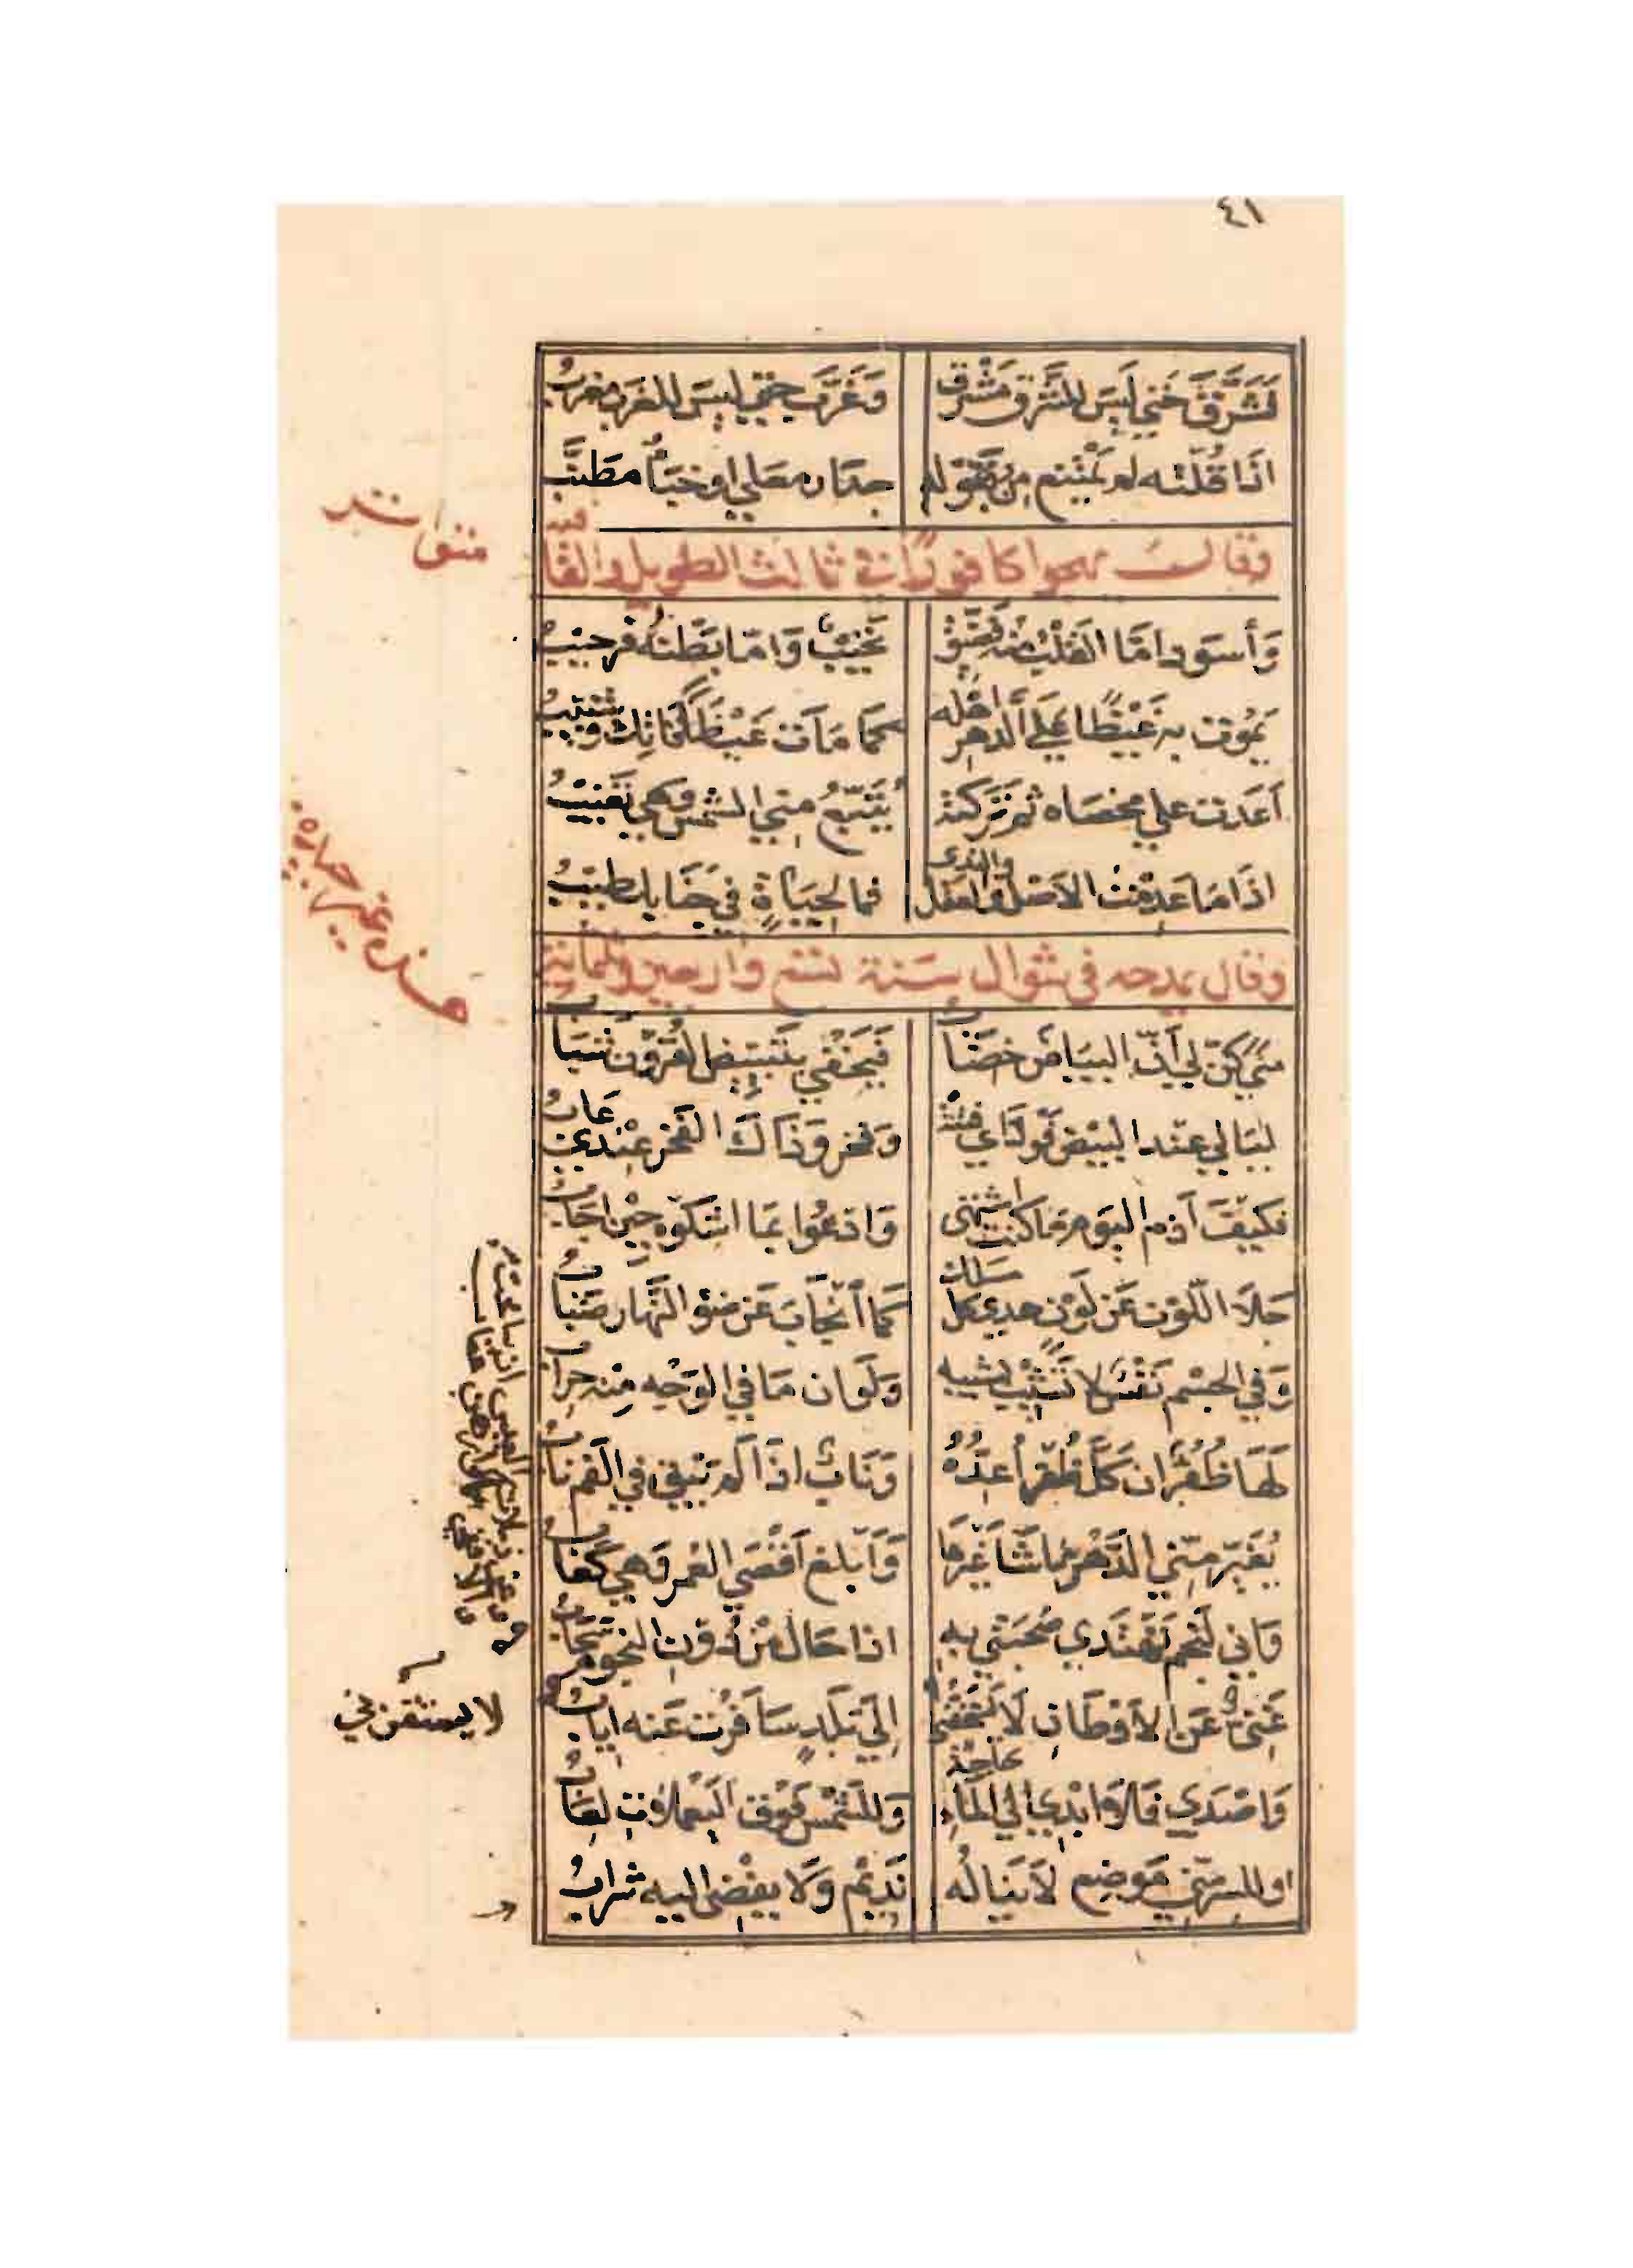 ٤١
فَشَرَّقَ حَتي لَيسَ للشَّرق مَشْرِق وَغَرَّبَ حتي ليسَ للغَرب مَغربُ
اذَا قُلتُه لم يَمْتَنع مِن وُصولِه جدَار معَلي او خبَاٌ مطَنَّبُ
وقال يهجوا كافورًا في ثالث الطويل والقافيه
متواتر
وَأسوَد امَّا القَلبُ منه فَضَيّقٌ نَخيْبٌ وَامّا بَطْنُه فرَحيْبُ
يَموُت به غَيْظًا عَلي الَدهرِ اهْله كما مَاَت غَيْظًا فَاتِك وشَبيْبُ
أعَدت علي مخصَاه ثم تَركته يُتَبّعُ مني الشمسَ وَهي تَغيْبُ
اذَا مَا عَدِمْتَ الاصْلَ وَالعَقل والندى فما لحِيَاةٍ في جَنَابك طيبُ
وقال يمدحه في شوال سَنة تسع واربعين وثلثمائة
مُنًي كنّ لي أنّ البيَاضَ خضَابُ فيَخفي بتَبييضِ القُرُون شَبَابُ
ليَالي عنْد البيْض فَودَاي فتنَة وَفخر وَذَاكَ الفَخر عنْدي عَابُ
فكيَفَ أذم اليَوم مَا كنت اشتهى وَادعُوا بمَا اشكوه حِيْن اجَابُ
جَلَا اللّون عَن لَوْن هدي كل مسلك كَما أنجَابَ عَن ضَوْ النّهار ضبَابُ
وَفي الجسْم نَفْس لا تَشيْب بشيبه وَلَو ان مَا في الوَجْه مِنْه حِرَابُ
لَهَا ظُفُرٌ ان كَلَّ ظُفْرٌ أُعِدُّهُ وَنَابٌ اذَا لم يَبق في الفَم نابُ
يُغَيّر مِنّي الدّهْر مَا شَا غَيْرهَا وَأبلغ أقْصَي العُمر وَهي كعَابُ
وَاني لَنَجم تَهتَدي صُحبَتي به اذا حَال مِنْ دُون النجوم سَحَابُ
غَنيٌّ عَن الاَوْطَانِ لَا يَسْتَخفُّني إِلَي بَلَدٍ سَافَرْتُ عَنه ايابُ
لا يستفزني
وَاصْدَي فَلا ابْدي الي المَاءِ حاجَة وَللشَّمْس فَوْق اليَعملَات لعَابُ
وللسر مني مَوضِع لاَ يَنَالُه نَدِيْم وَلا يفْضى اليه شرابُ